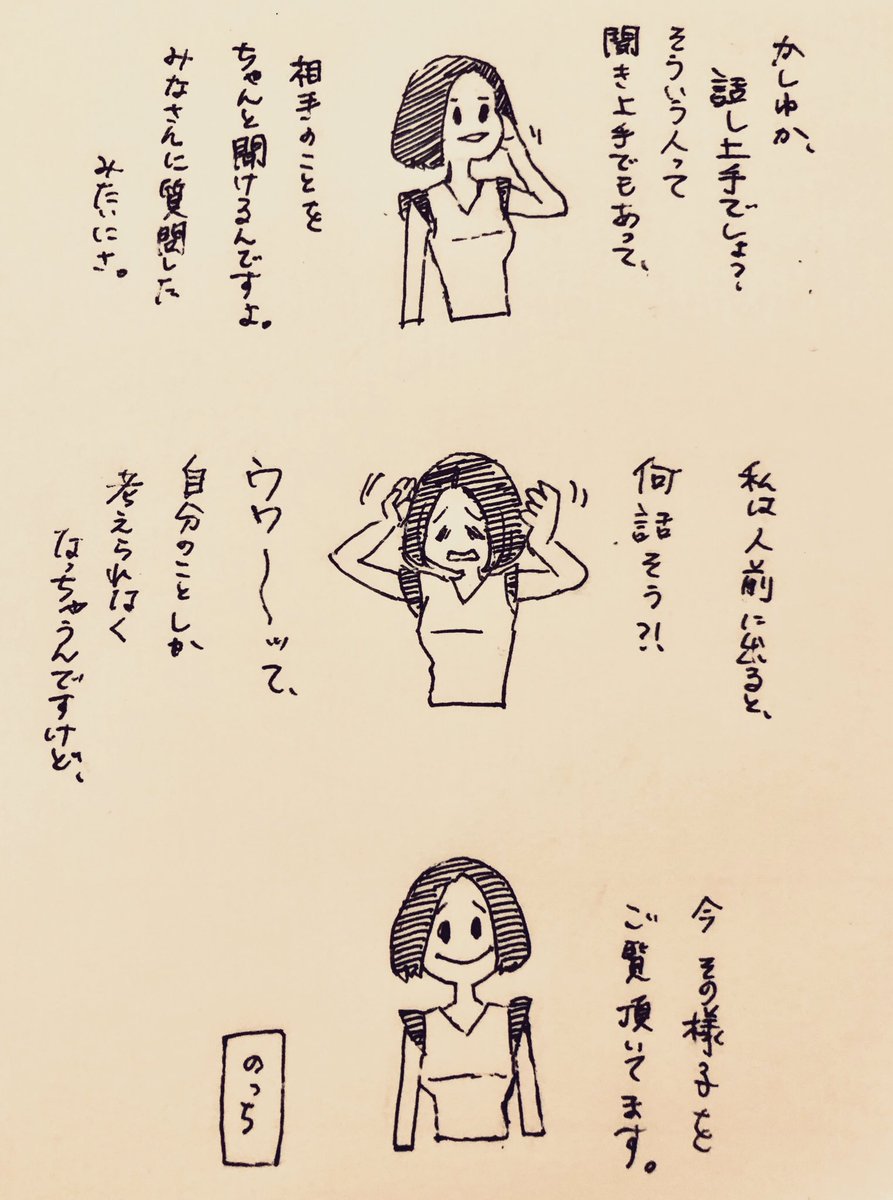 かしゆか、
話し上手でしょ？
そういう人って
聞き上手でもあって、
相手のことを
ちゃんと聞けるんですよ。
みなさんに質問した
みたいにさ。
私は人前に出ると、
何話そう?!
ウワ〜〜ッて、
自分のことしか
考えられなく
なっちゃうんですけど、
今その様子を
ご覧頂いてます。
のっち